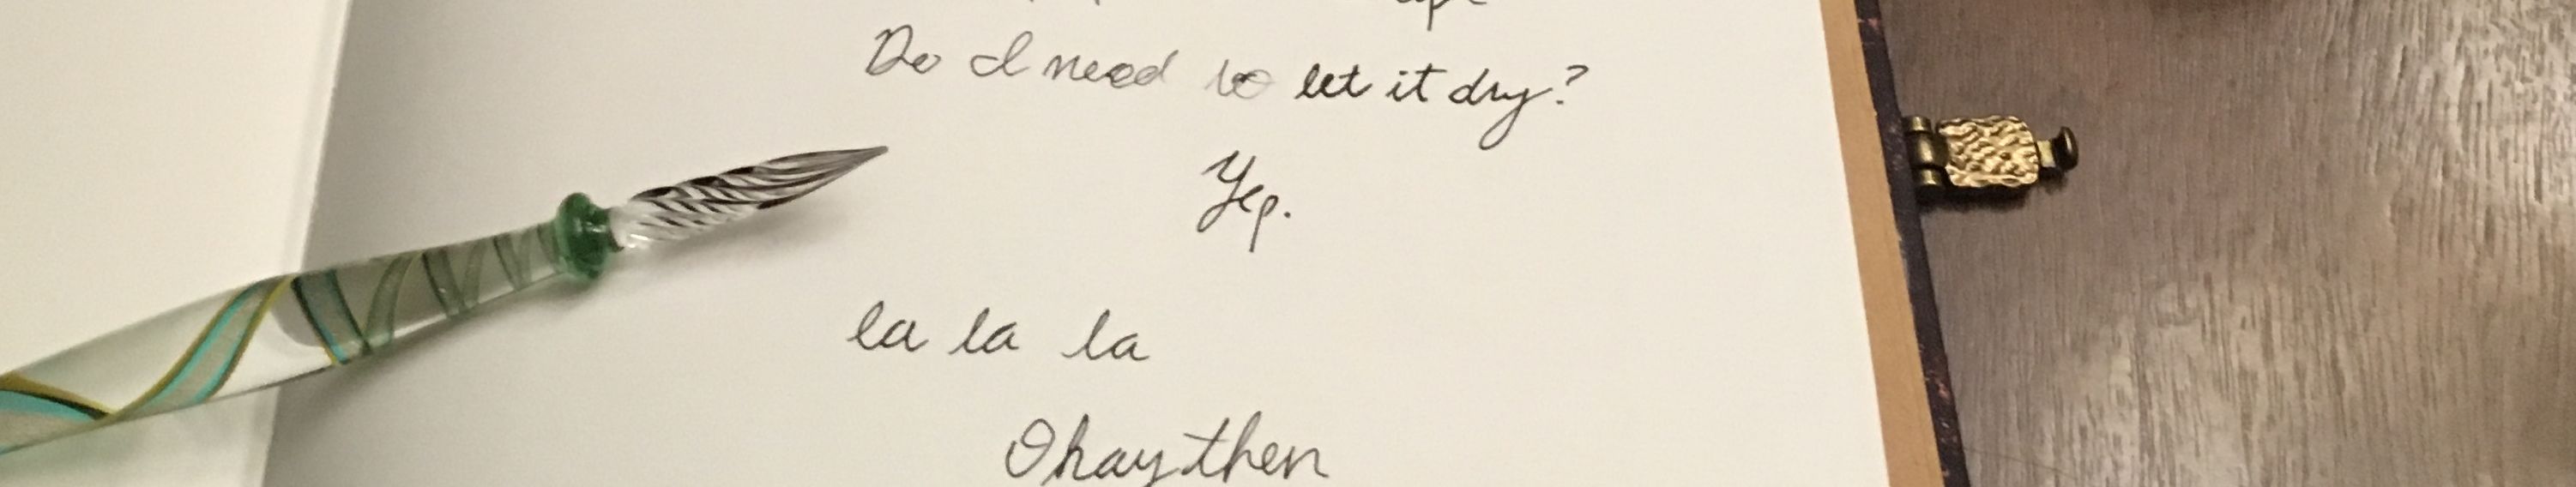 Do I need to let it dry?
Yep.
la la la
Okay then